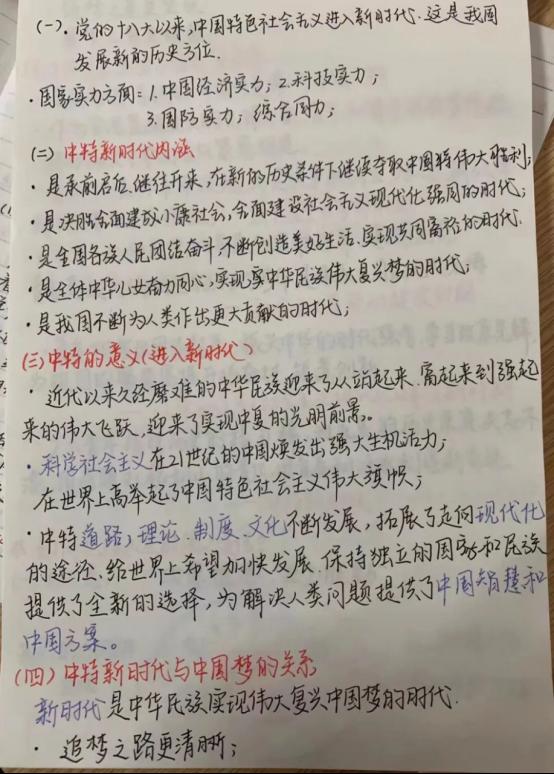 (一).党的十八大以来,中国特色社会主义进入新时代.这是我国
发展新的历史方位.
·国家实力方面:1.中国经济实力;2.科技实力;
3.国防实力;综合国力;
(二)中特新时代内涵
·是承前启后,继往开来,在新的历史条件下继续夺取中国特伟大胜利;
·是决胜全面建成小康社会,全面建设社会主义现代化强国的时代;
·是全国各族人民团结奋斗,不断创造美好生活.实现共同富裕的时代.
·是全体中华儿女奋力同心,实现实中华民族伟大复兴梦的时代;
·是我国不断为人类作出更大贡献的时代;
(三)中特的意义(进入新时代)
·近代以来久经磨难的中华民族迎来了从站起来.富起来到强起
来的伟大飞跃.迎来了实现中复的光明前景。
·科学社会主义在21世纪的中国焕发出强大生机活力;
在世界上高举起了中国特色社会主义伟大旗帜;
·中特道路,理论.制度、文化不断发展,拓展了走向现代化
的途径、给世界上希望加快发展.保持独立的国家和民族
提供了全新的选择,为解决人类问题提供了中国智慧和
中国方案。
(四)中特新时代与中国梦的关系
新时代是中华民族实现伟大复兴中国梦的时代.
·追梦之路更清晰;